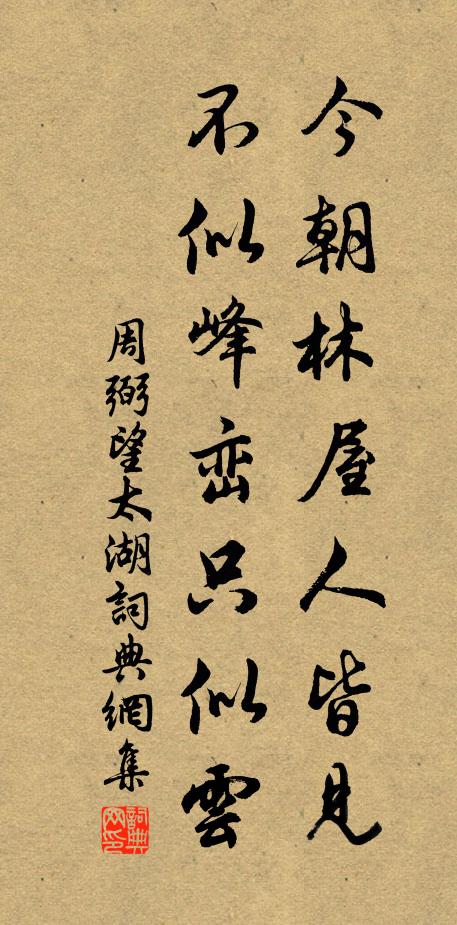 今朝林屋人皆見
不似峰巒只似雲
周弼望太湖詞典網集
詞典网印